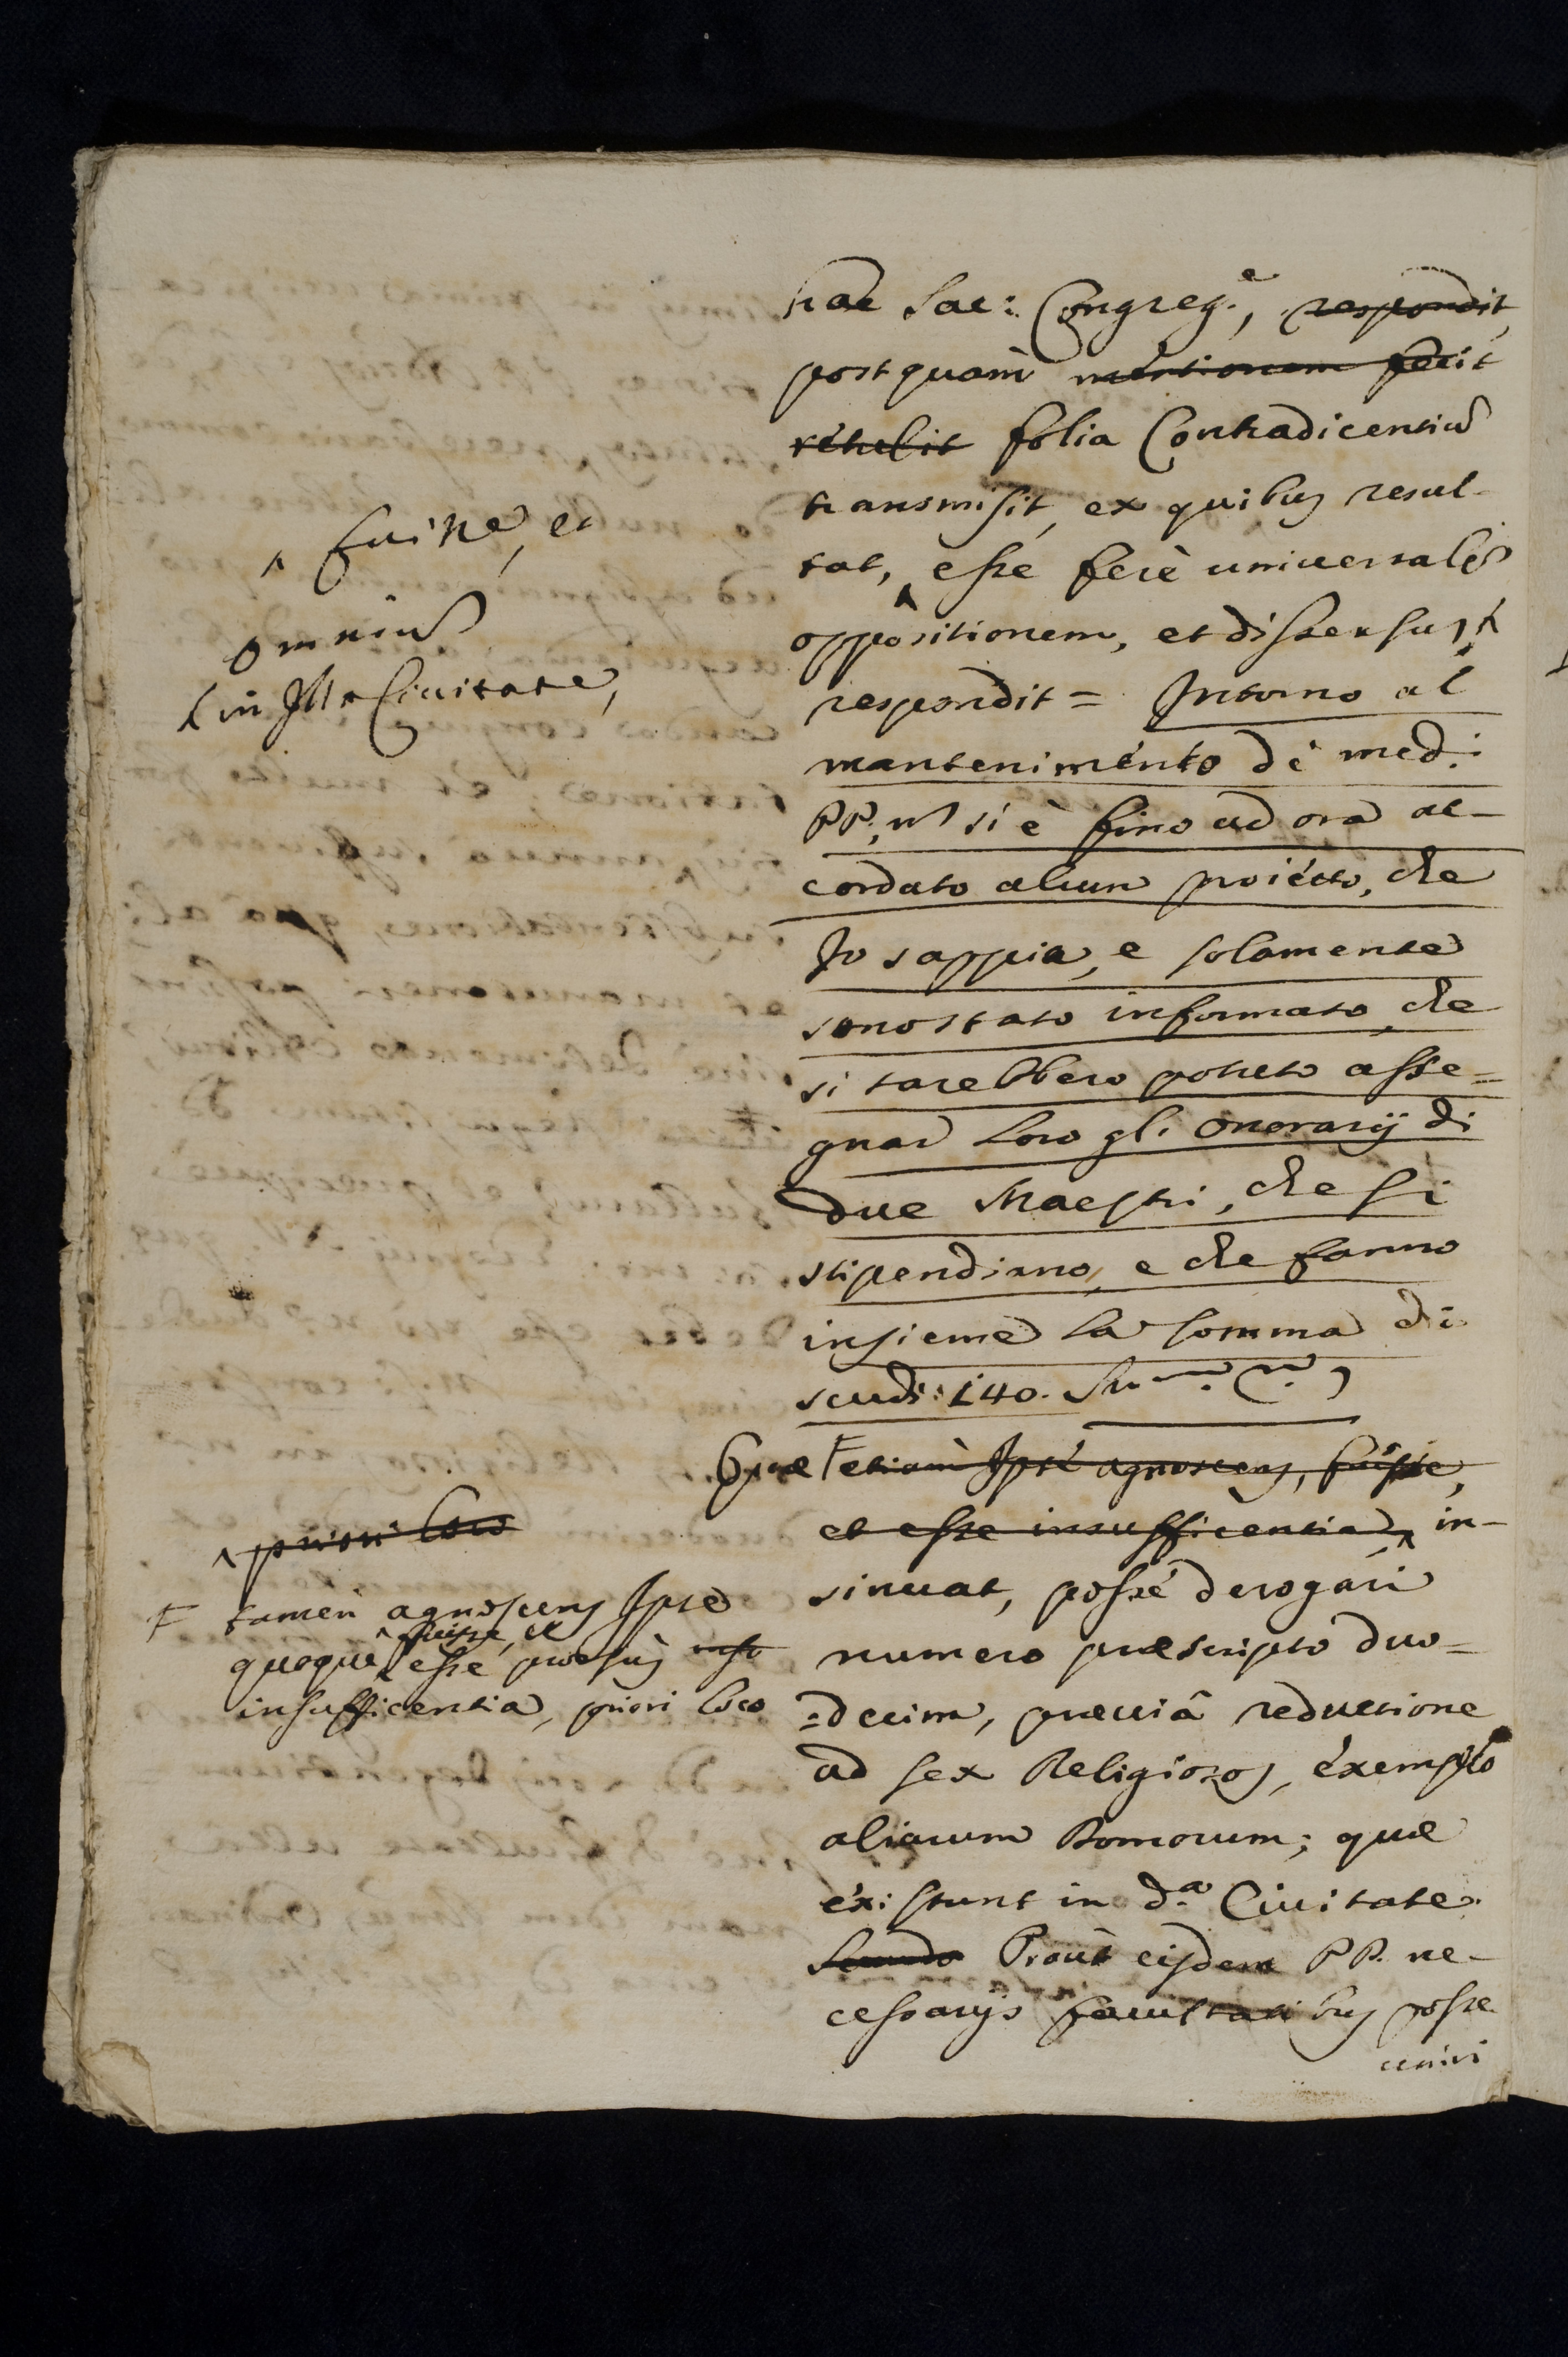 hac Sac: Congreg.e, respondit,
postquam mentionem fecit
retulit folia Contradicentiũ
transmisit, ex quibus resul-
tat, ^ esse ferè universalẽ
^ fuisse, et
oppositionem, et dissensus ^
omniũ
^ in Illa Civitate,
respondit = Intorno al
mantenimento de med:i
PP. nõ si è fino ad ora ac-
cordato alcun proietto, che
Io sappia, e solamente
sono stato informato, che
si sarebbero potuto asse=
gnar loro gli onorarij di
due Maestri, che si
stipendiano, e che fanno
insieme la somma di
scudi: 140.
Quae F etiam Ipse agnoscens, fuisse,
et esse insufficentia, ^ in-
^ priori loco
sinuat, posse derogari
F tamen agnoscens Ipse
quoque ^ fuisse, et esse prorsus
insufficentia, priori loco
numero praescripto duo=
=decim, praeviâ reductione
ad sex Religiosos, exemplo
aliarum Domorum; quae
existunt in d.a Civitate.
Prout eisdem PP. ne-
cessarijs facultatibus posse
uniri